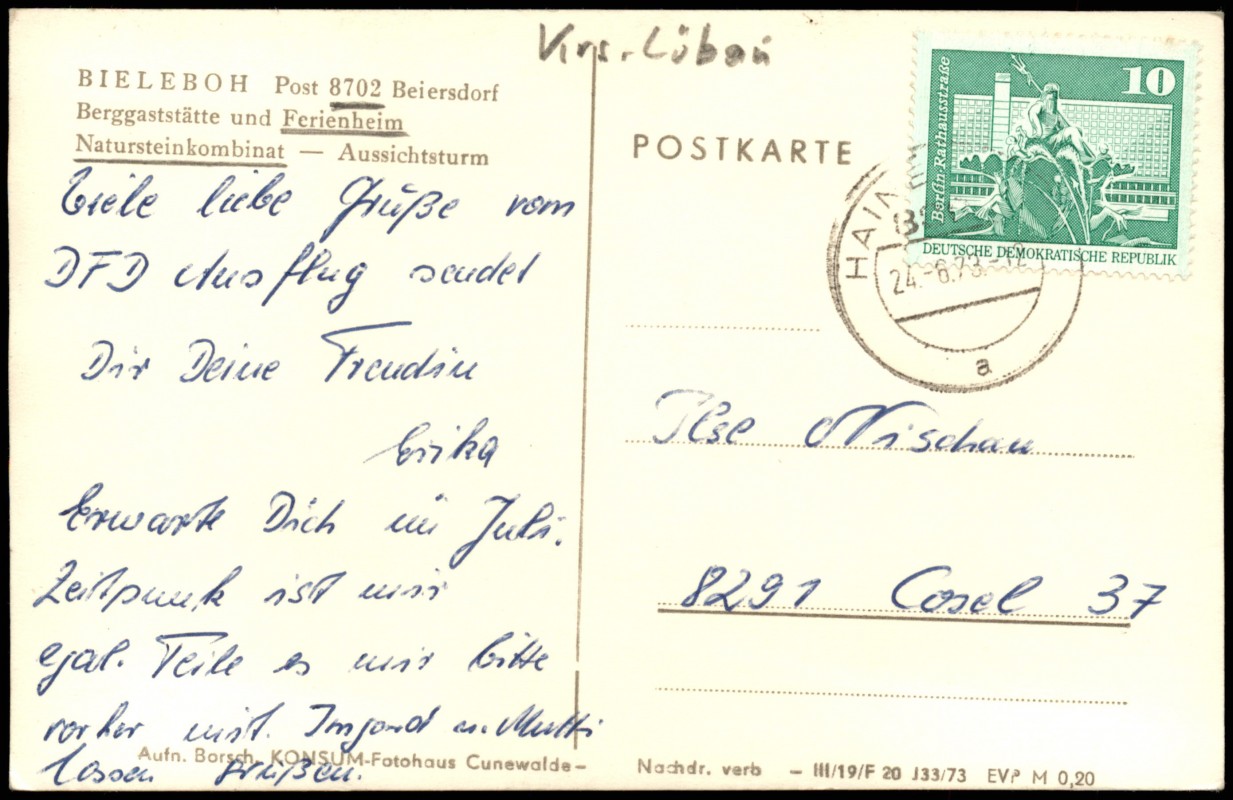 Krs. Löbau
BIELEBOH Post 8702 Beiersdorf
Berggaststätte und Ferienheim
Natursteinkombinat — Aussichtsturm
Viele liebe Grüße vom
DFD Ausflug sendet
Dir Deine Freundin
Erika
Erwarte Dich im Juli.
Zeitpunk ist mir
egal. Teile es mir bitte
vorher mit. Irmgard u. Mutti
lassen grüßen.
Aufn. Borsch, KONSUM-Fotohaus Cunewalde-
POSTKARTE
10
Berlin-Rathausstraße
DEUTSCHE DEMOKRATISCHE REPUBLIK
24.-6.73.-12
a
Ilse Nischau
8291 Cosel 37
Nachdr. verb – III/19/F 20 J33/73 EVP M 0,20